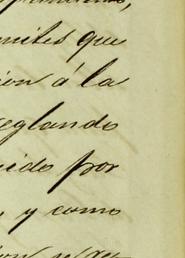 mites que
ion á la
eglando
ido por
, y como